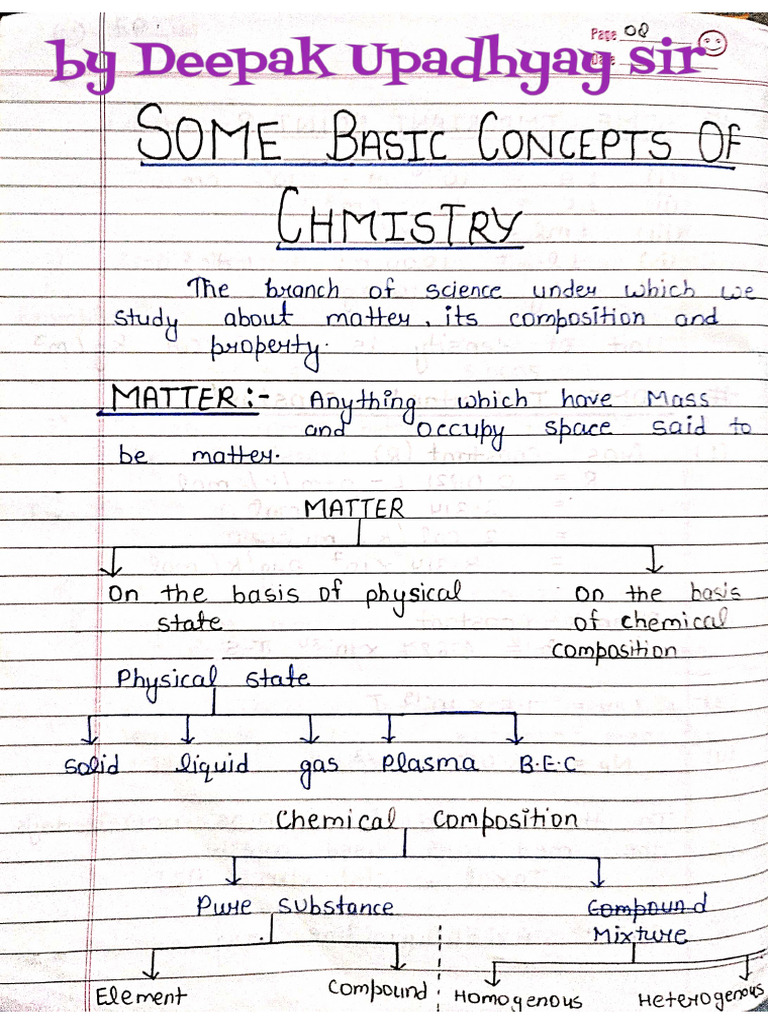 Page 08
by Deepak Upadhyay sir
SOME BASIC CONCEPTS OF
CHMISTRY
The branch of science under which we
study about matter, its composition and
property.
MATTER:- Anything which have Mass
and occupy space said to
be matter.
MATTER
On the basis of physical state
On the basis of chemical composition
Physical state
solid liquid gas Plasma B.E.C
Chemical composition
Pure substance
Compound
Mixture
Element Compound Homogenous Heterogenous